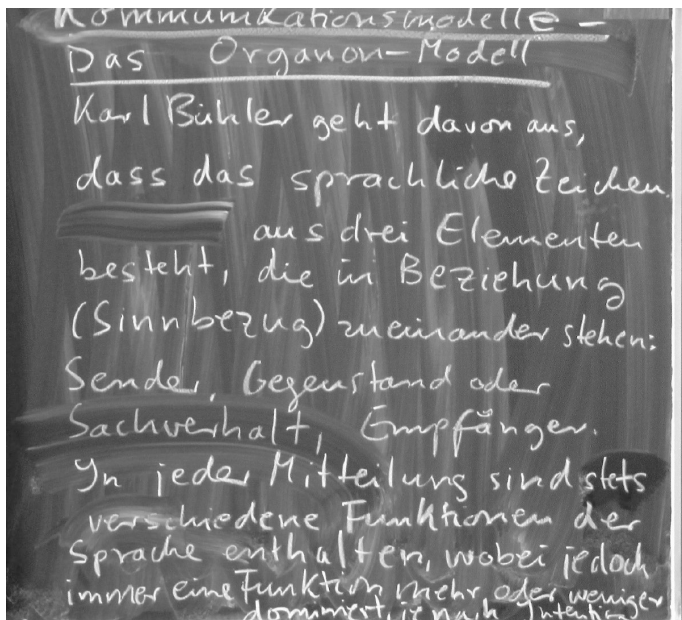 Kommunikationsmodelle -
Das Organon-Modell
Karl Bühler geht davon aus,
dass das sprachliche Zeichen
aus drei Elementen
besteht, die in Beziehung
(Sinnbezug) zueinander stehen:
Sender, Gegenstand oder
Sachverhalt, Empfänger.
In jeder Mitteilung sind stets
verschiedene Funktionen der
Sprache enthalten, wobei jedoch
immer eine Funktion mehr oder weniger
dominiert, je nach Intention